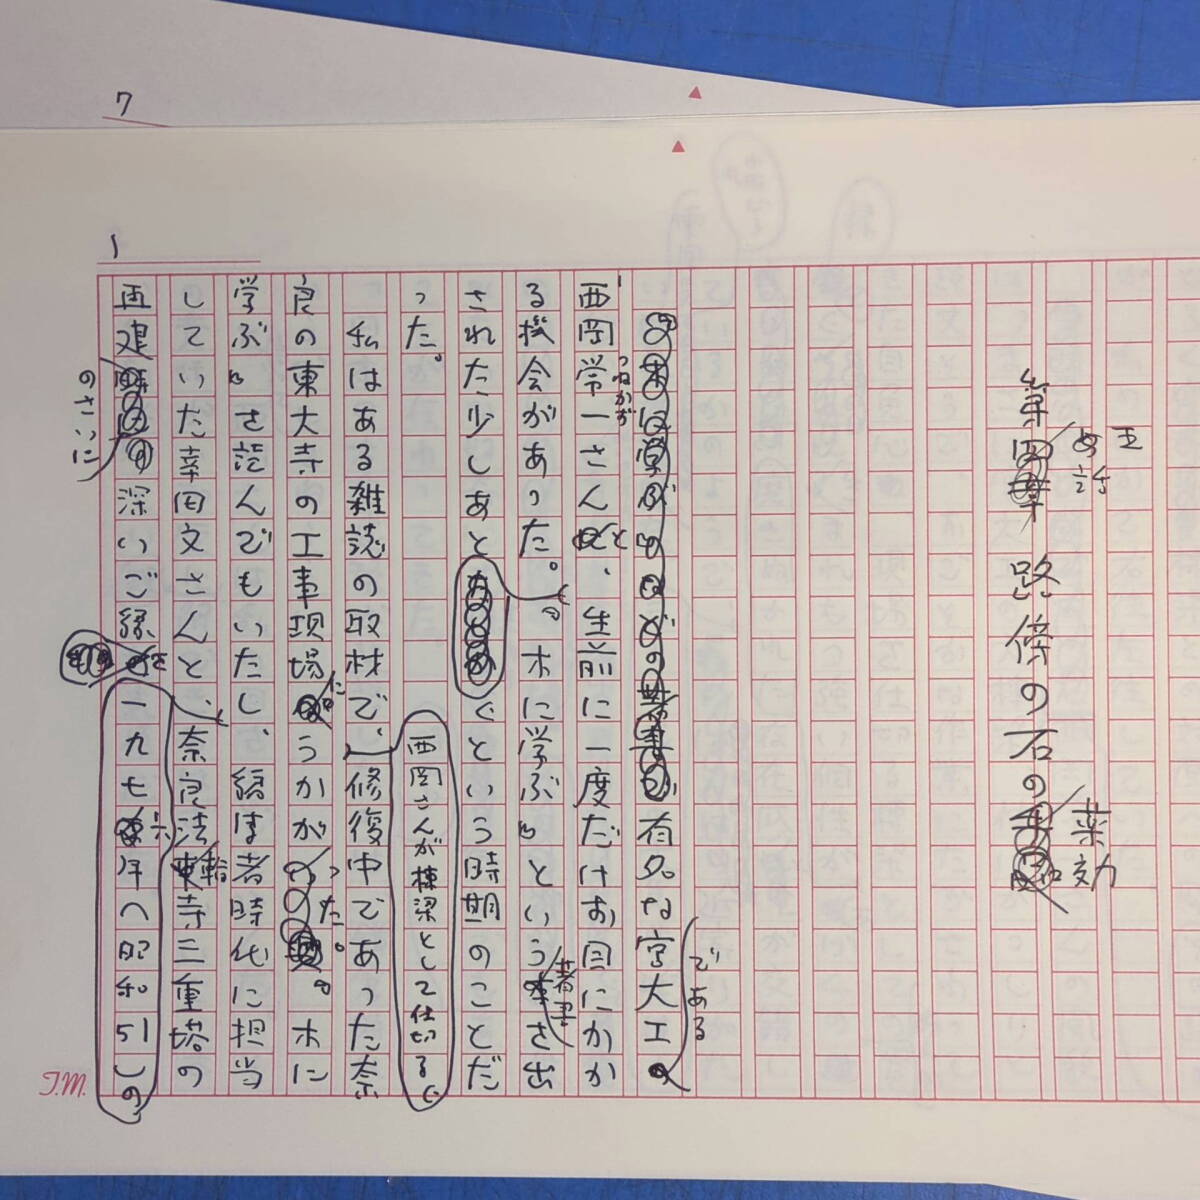 7
玉
第
め話
路傍の石の
薬効
有名な宮大工
である
西岡常一さんと、生前に一度だけお目にかか
つねかず
る機会があった。『木に学ぶ』というさ出
著書
された少しあと
ぐという時期のことだ
西岡さんが棟梁として仕切る
った。
私はある雑誌の取材で、修復中であった奈
良の東大寺の工事現場にうかがった。『木に
学ぶ』を読んでもいたし、編集者時代に担当
していた幸田文さんと、奈良法輪寺三重塔の
再建
のさいに
深いご縁
一九七六年へ昭和51しの
1
T.M.